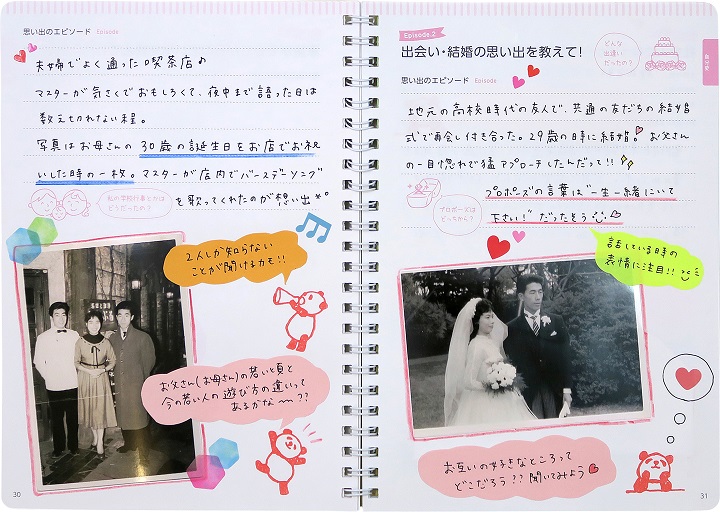 思い出のエピソード Episode
夫婦でよく通った喫茶店♪
マスターが気さくでおもしろくて、夜中まで語った日は
数えきれない程。
写真はお母さんの30歳の誕生日をお店でお祝
いした時の一枚。マスターが店内でバースデーソング
を歌ってくれたのが想い出
私の学校行事とかは
どうだったか?
2人しか知らない
ことが聞けるカモ!!
お父さん(お母さん)の若い頃と
今の若い人の遊び方の違いって
あるかな〜??
30
Episode.2
出会い・結婚の思い出を教えて!
どんな
出逢い
だったの?
自分史
思い出のエピソード Episode
地元の高校時代の友人で、共通の友だちの結婚
式で再会し付き合った。29歳の時に結婚。お父さん
の一目惚れで猛アプローチしたんだって!!
プロポーズの言葉は"一生一緒にいて
下さい!"だったそう
プロポーズは
どっちから?
話している時の
表情に注目!!
お互いの好きなところって
どこだろう??聞いてみよう
31